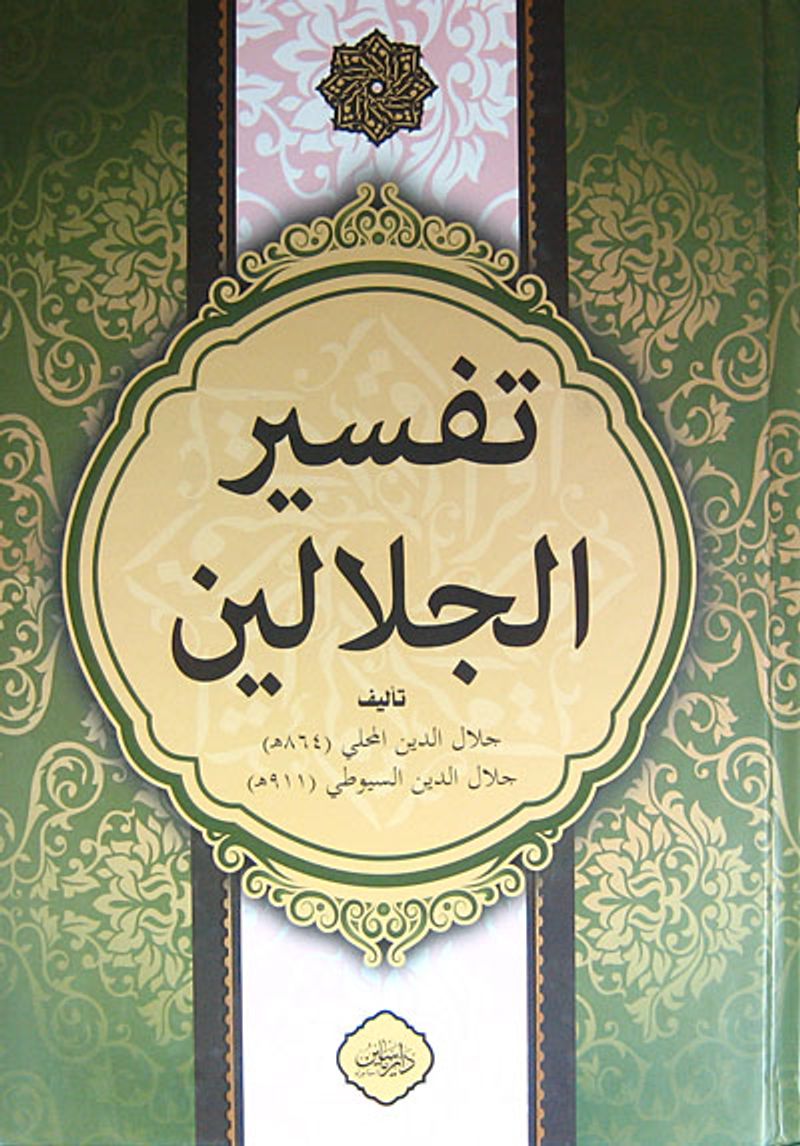 تفسير
الجلالين
تأليف
جلال الدين المحلي (٨٦٤هـ)
جلال الدين السيوطي (٩١١هـ)